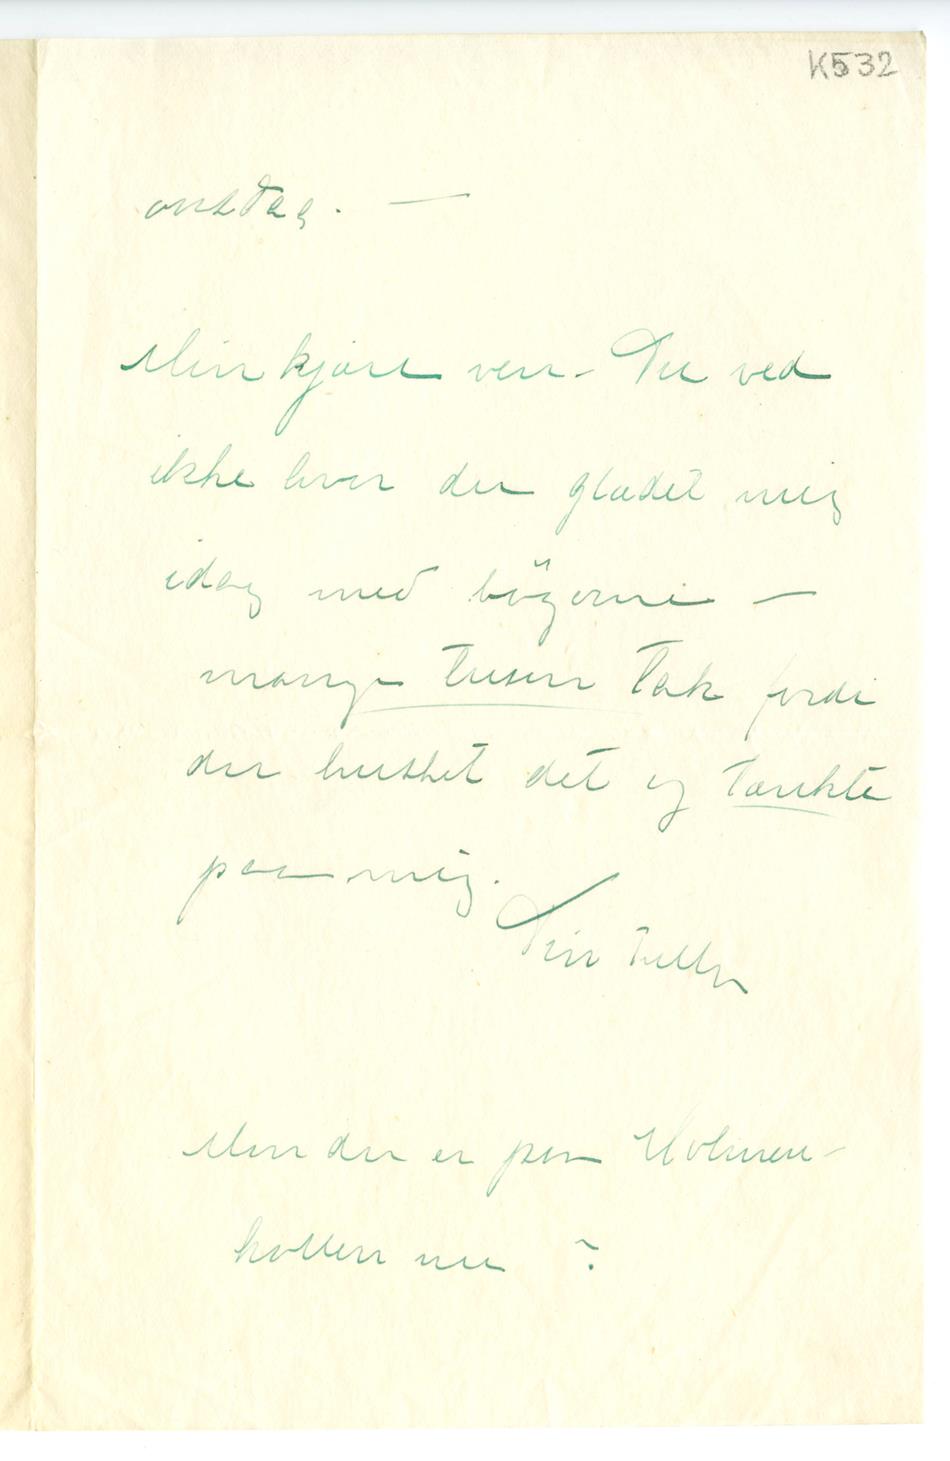 K532
onsdag. —
Min kjære ven – Du ved
ikke hvor du glædet mig
idag med bøgerne —
mange tusen tak fordi
du husket det og tænkte
paa mig.
Din Tulla
Men du er paa Holmen-
kollen nu ?